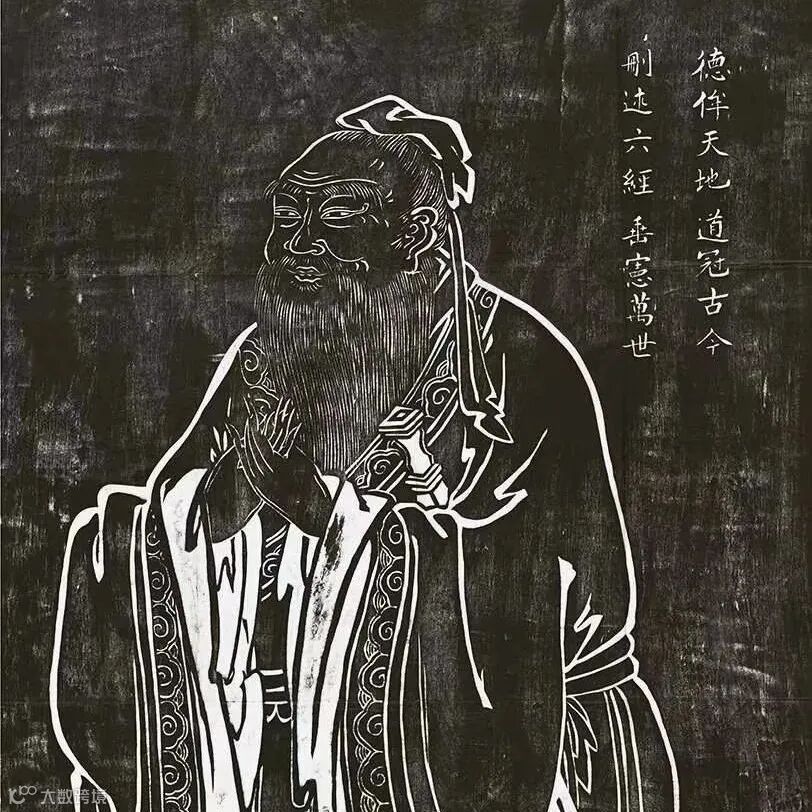 德侔天地 道冠古今
刪述六經 垂憲萬世
大数跨境